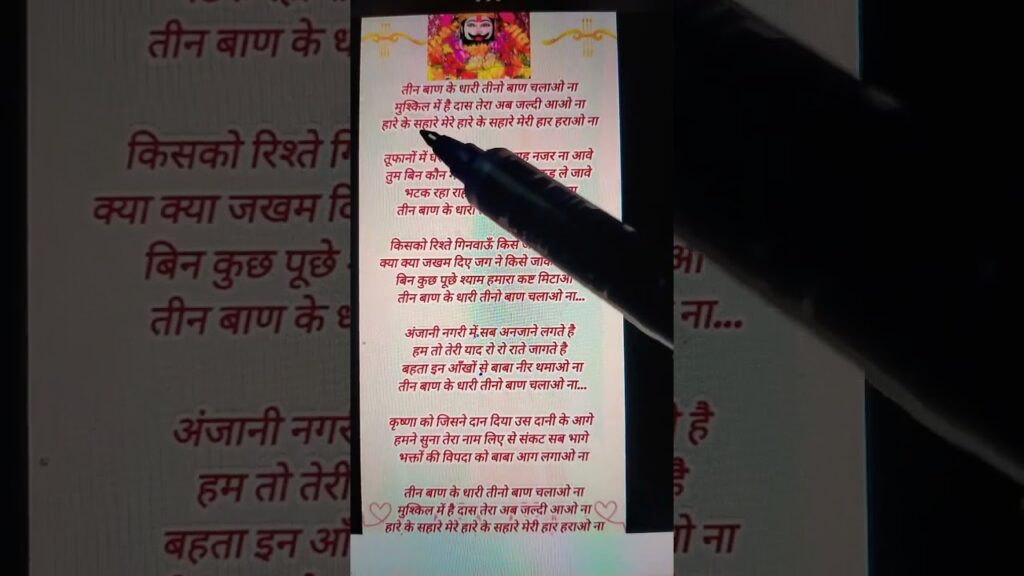 तीन बाण के धारी तीनो बाण चलाओ ना
मुश्किल में है दास तेरा अब जल्दी आओ ना
हारे के सहारे मेरे हारे के सहारे मेरी हार हराओ ना
तूफानों में नजर ना आवे
तुम बिन कौन ले जावे
भटक रहा
तीन बाण के धारी
किसको रिश्ते गिनवाऊँ किसे
क्या क्या जखम दिए जग ने किसे
बिन कुछ पूछे श्याम हमारा कष्ट मिटाओ
तीन बाण के धारी तीनो बाण चलाओ ना...
अंजानी नगरी में सब अनजाने लगते है
हम तो तेरी याद रो रो राते जागते है
बहता इन आँखों से बाबा नीर थमाओ ना
तीन बाण के धारी तीनो बाण चलाओ ना...
कृष्णा को जिसने दान दिया उस दानी के आगे
हमने सुना तेरा नाम लिए से संकट सब भागे
भक्तों की विपदा को बाबा आग लगाओ ना
तीन बाण के धारी तीनो बाण चलाओ ना
मुश्किल में है दास तेरा अब जल्दी आओ ना
हारे के सहारे मेरे हारे के सहारे मेरी हार हराओ ना